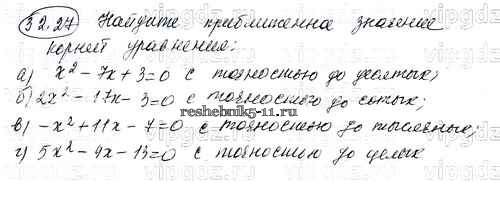 32.27 Найдите приближенное значение
корней уравнения:
а) x² - 7x + 3 = 0 с точностью до десятых;
б) 2x² - 17x - 3 = 0 с точностью до сотых;
reshebnik5-11.ru
в) -x² + 11x - 7 = 0 с точностью до тысячных;
г) 5x² - 9x - 13 = 0 с точностью до целых